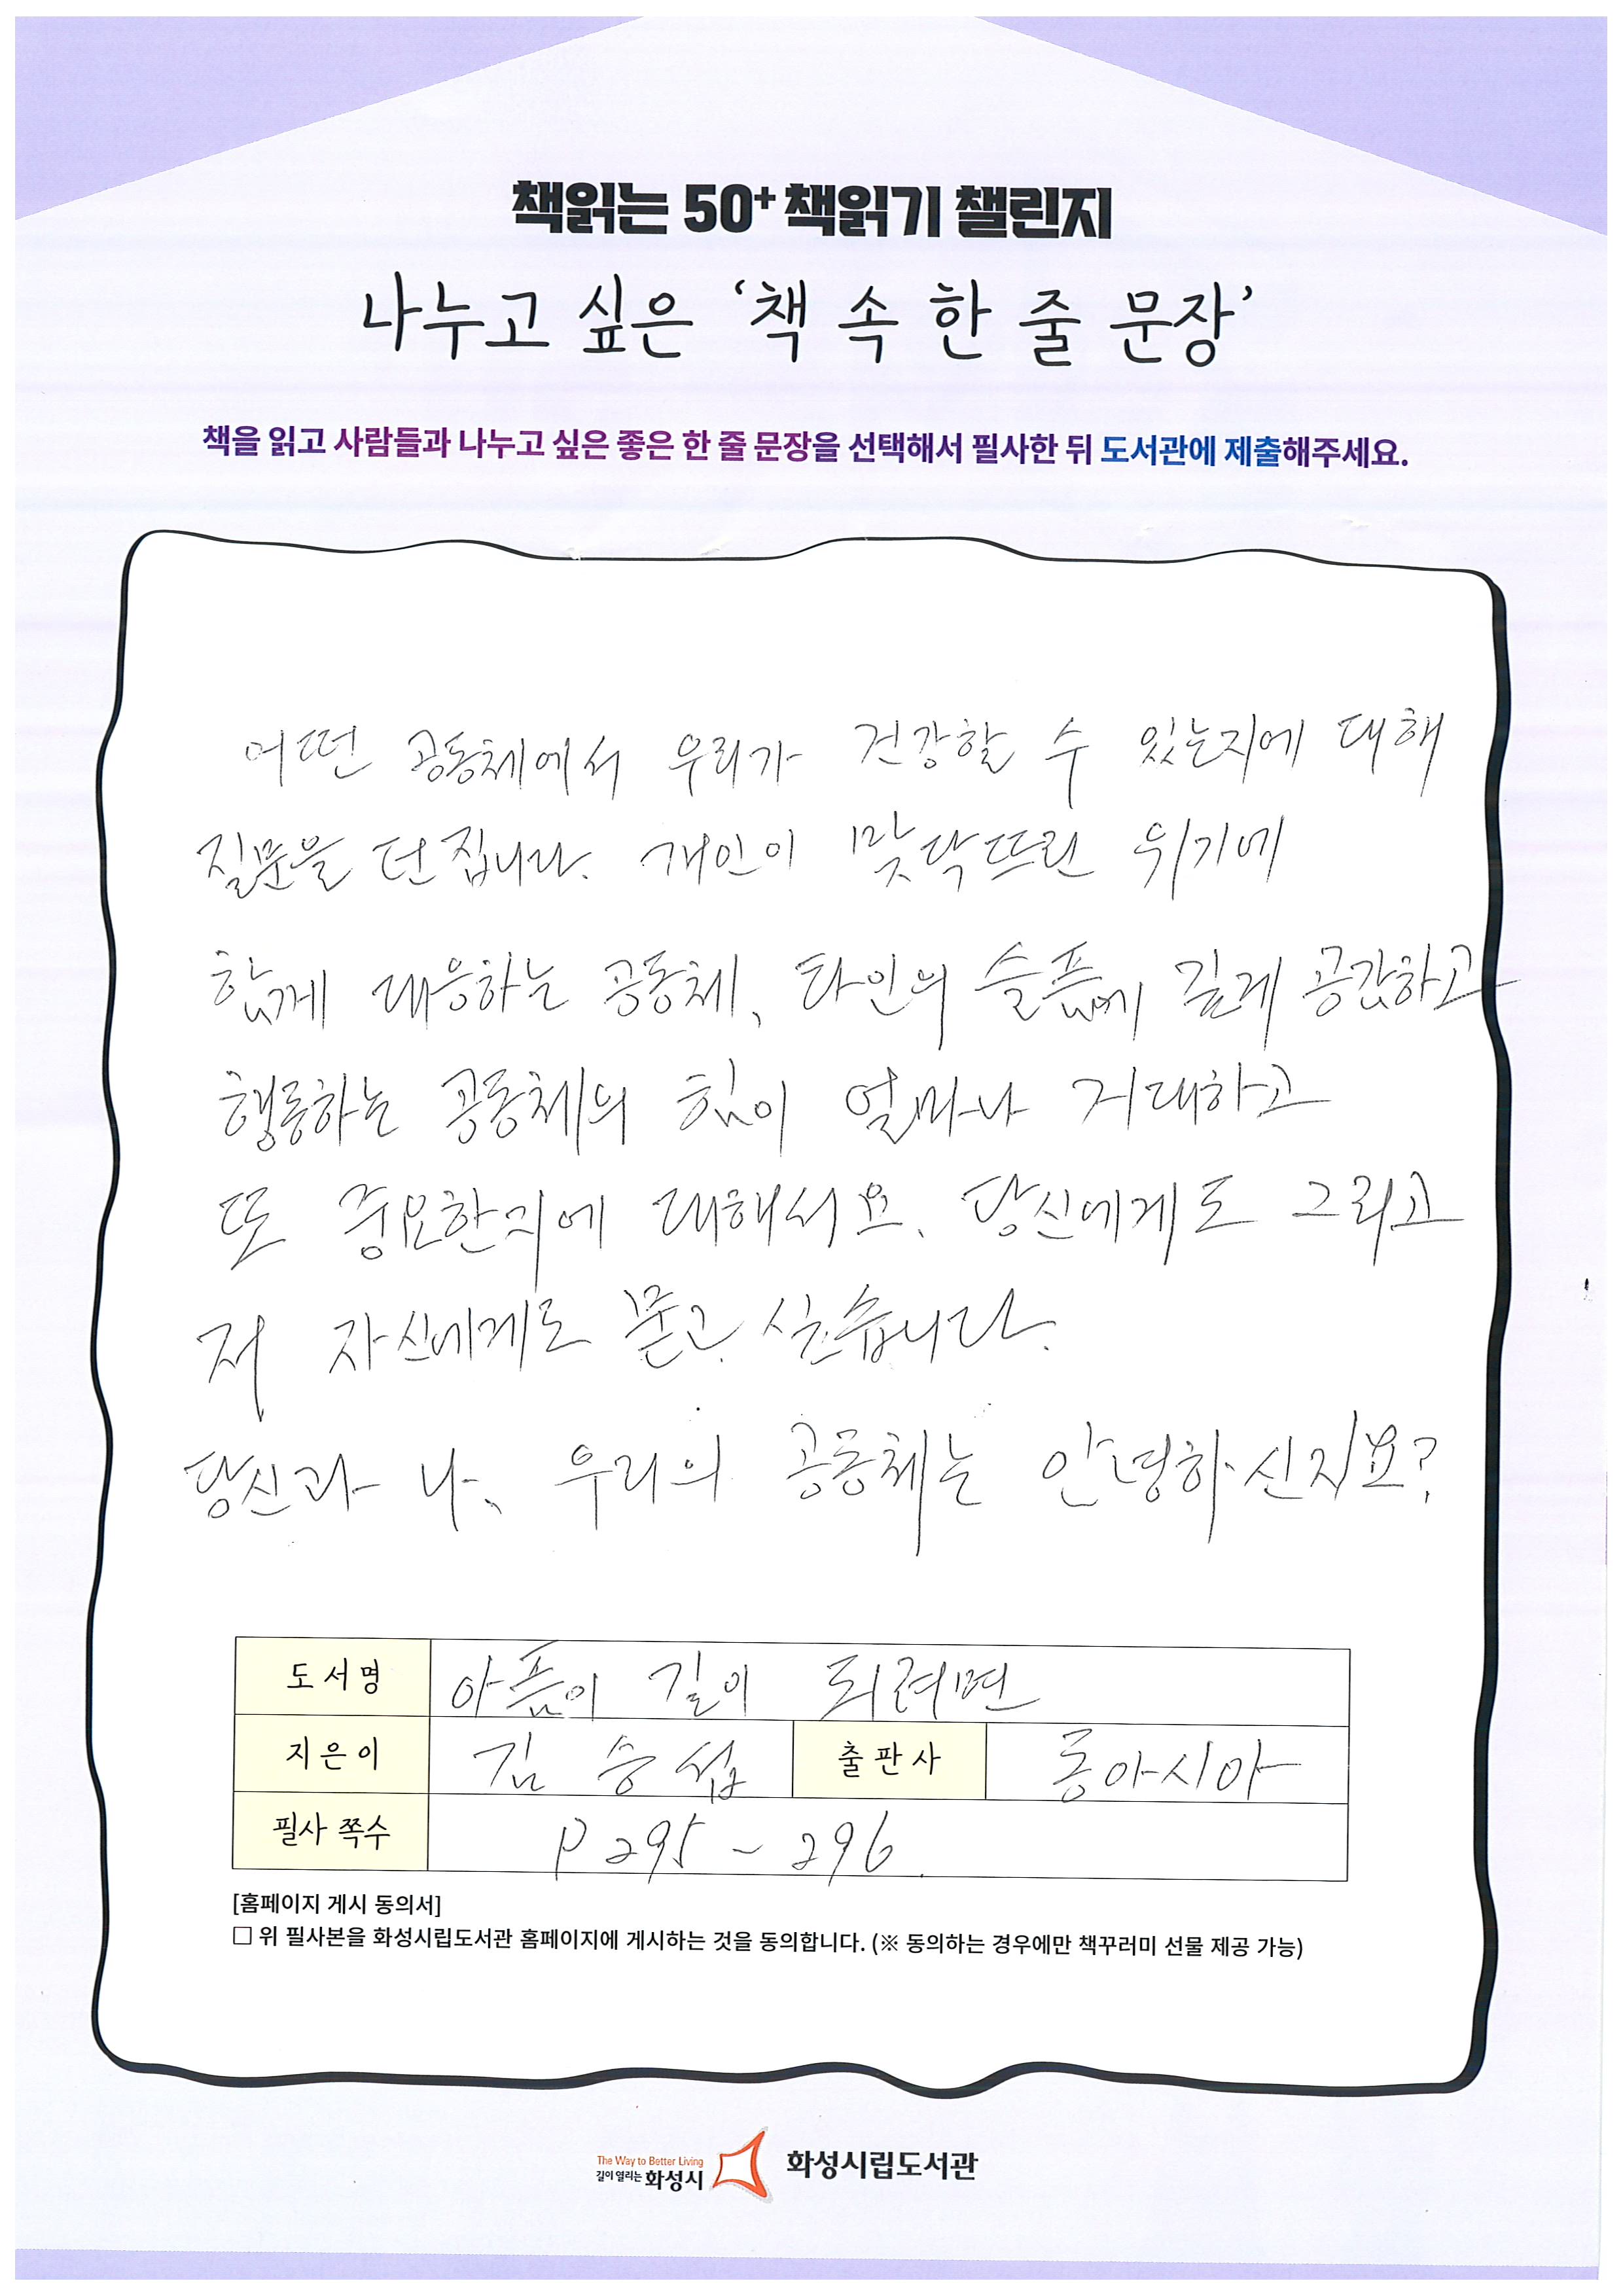 책읽는 50+ 책읽기 챌린지
나누고 싶은 ‘책 속 한 줄 문장’
책을 읽고 사람들과 나누고 싶은 좋은 한 줄 문장을 선택해서 필사한 뒤 도서관에 제출해주세요.
어떤 공동체에서 우리가 건강할 수 있는지에 대해
질문을 던집니다. 개인이 맞닥뜨린 위기에
함께 대응하는 공동체, 타인의 슬픔에 깊게 공감하고
행동하는 공동체의 힘이 얼마나 거대하고
또 중요한지에 대해서요. 당신에게도 그리고
저 자신에게도 묻고 싶습니다.
당신과 나, 우리의 공동체는 안녕하신지요?
도서명 아픔이 길이 되려면
지은이 김승섭 출판사 동아시아
필사 쪽수 P 295 ~ 296.
[홈페이지 게시 동의서]
□ 위 필사본을 화성시립도서관 홈페이지에 게시하는 것을 동의합니다. (※ 동의하는 경우에만 책꾸러미 선물 제공 가능)
The Way to Better Living
길이 열리는 화성시 화성시립도서관